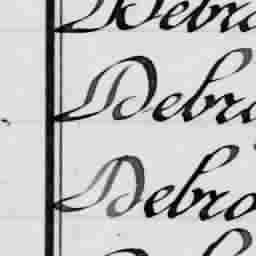 Debra
Debra
Debro